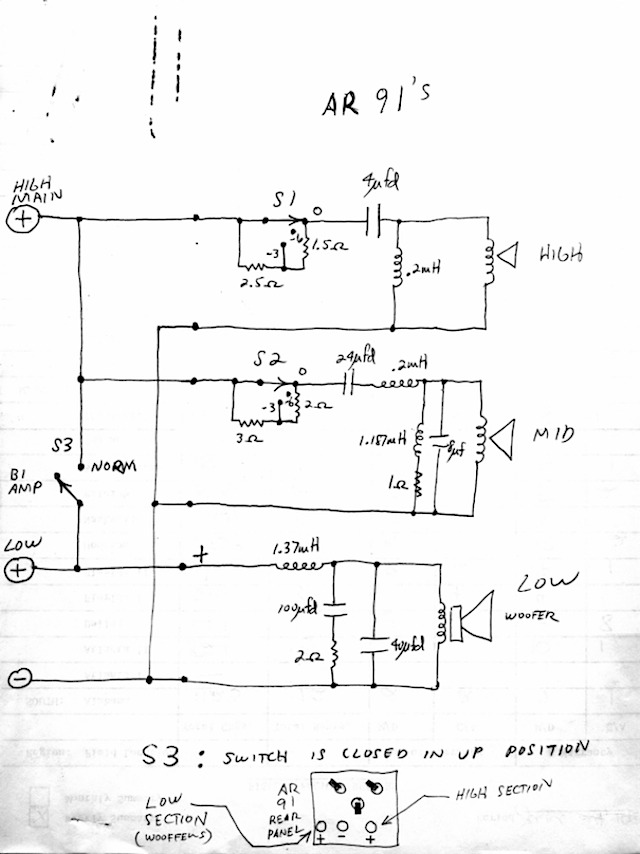 AR 91's
HIGH
MAIN
+
S1
0
-6
-3
1.5Ω
2.5Ω
4µfd
.2mH
HIGH
S2
0
-6
-3
2Ω
3Ω
24µfd
.2mH
1.157mH
8µf
1Ω
MID
S3
NORM
BI
AMP
LOW
+
+
1.37mH
100µfd
2Ω
40µfd
LOW
WOOFER
−
S3 : SWITCH IS CLOSED IN UP POSITION
LOW
SECTION
(WOOFERS)
AR
91
REAR
PANEL
+ − +
HIGH SECTION